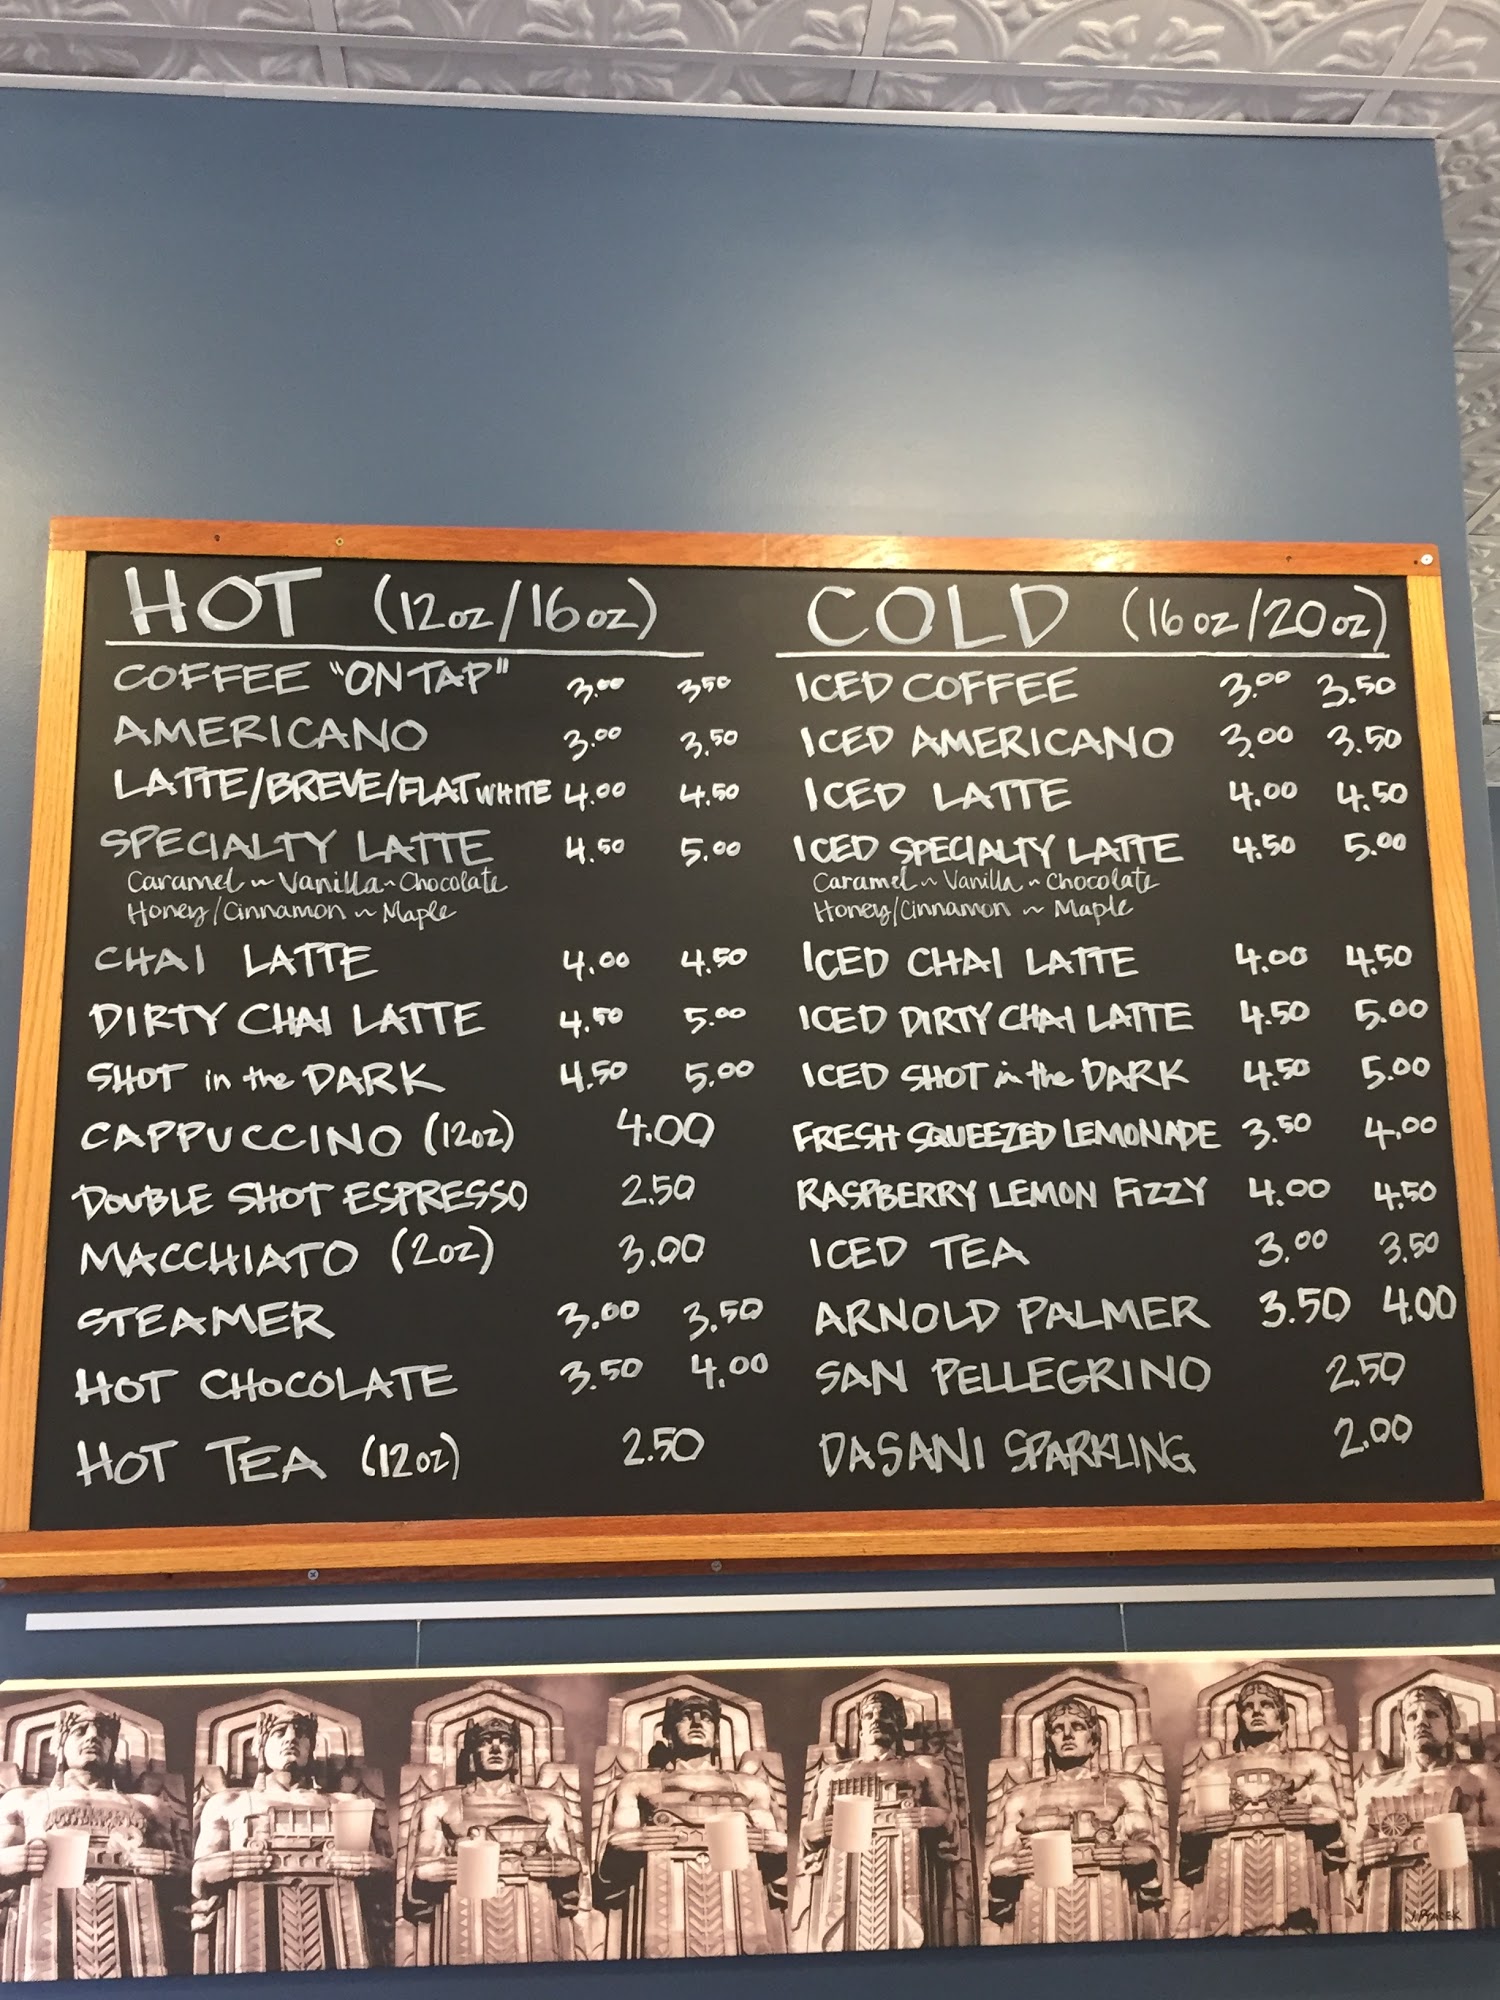 HOT (12oz/16oz)
COFFEE "ON TAP" 3.00 3.50
AMERICANO 3.00 3.50
LATTE/BREVE/FLAT WHITE 4.00 4.50
SPECIALTY LATTE 4.50 5.00
Caramel ~ Vanilla ~ Chocolate
Honey/Cinnamon ~ Maple
CHAI LATTE 4.00 4.50
DIRTY CHAI LATTE 4.50 5.00
SHOT in the DARK 4.50 5.00
CAPPUCCINO (12oz) 4.00
DOUBLE SHOT ESPRESSO 2.50
MACCHIATO (2oz) 3.00
STEAMER 3.00 3.50
HOT CHOCOLATE 3.50 4.00
HOT TEA (12oz) 2.50
COLD (16oz/20oz)
ICED COFFEE 3.00 3.50
ICED AMERICANO 3.00 3.50
ICED LATTE 4.00 4.50
ICED SPECIALTY LATTE 4.50 5.00
Caramel ~ Vanilla ~ Chocolate
Honey/Cinnamon ~ Maple
ICED CHAI LATTE 4.00 4.50
ICED DIRTY CHAI LATTE 4.50 5.00
ICED SHOT in the DARK 4.50 5.00
FRESH SQUEEZED LEMONADE 3.50 4.00
RASPBERRY LEMON FIZZY 4.00 4.50
ICED TEA 3.00 3.50
ARNOLD PALMER 3.50 4.00
SAN PELLEGRINO 2.50
DASANI SPARKLING 2.00